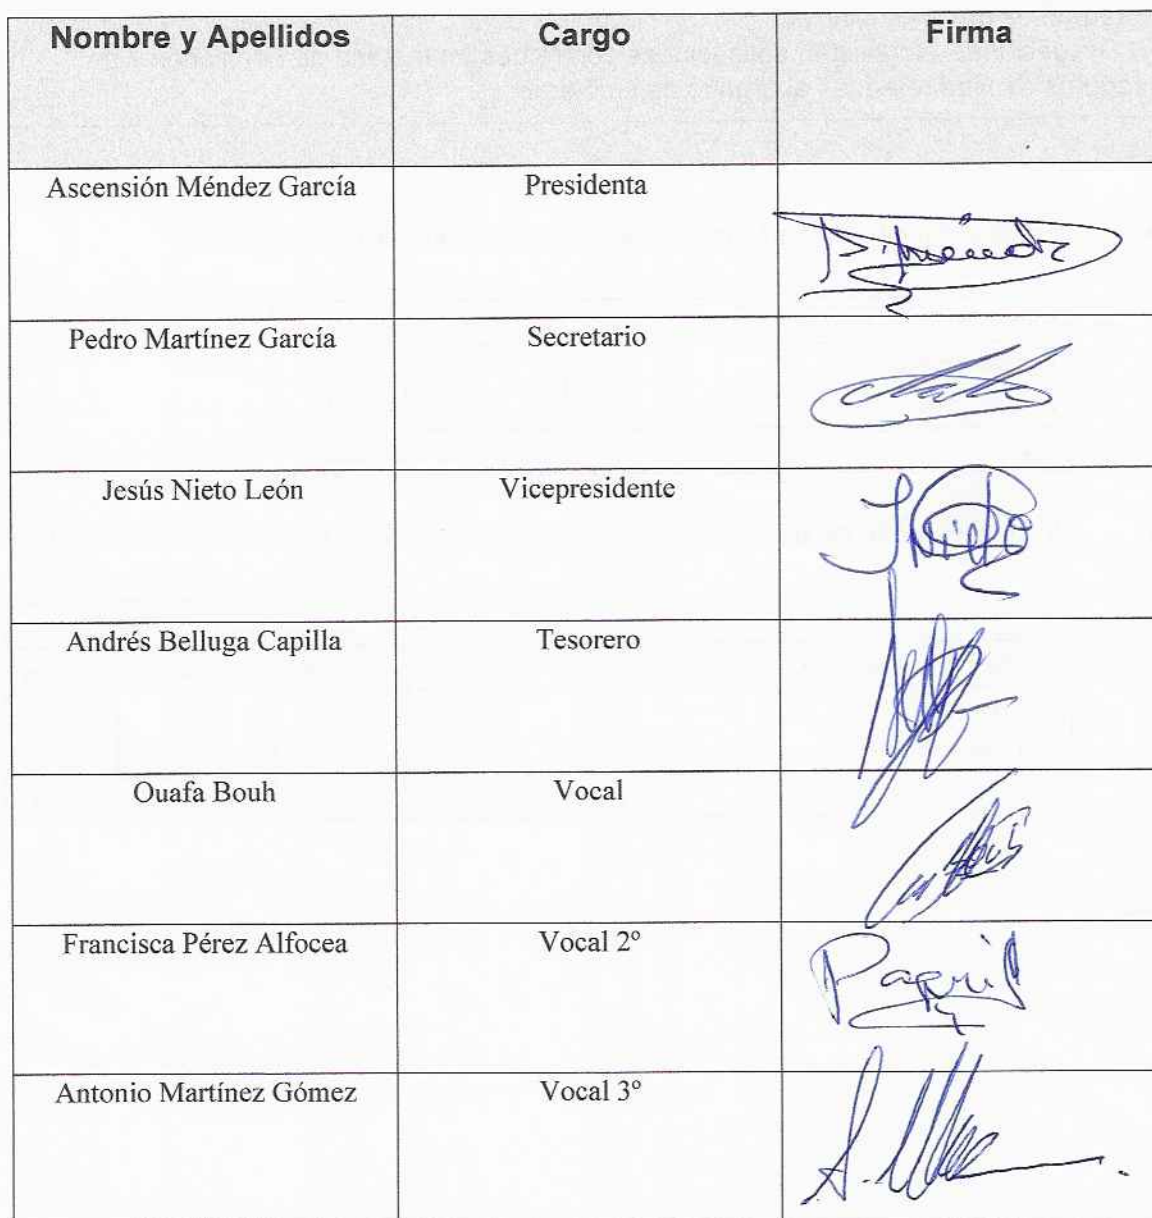 Nombre y Apellidos Cargo Firma
Ascensión Méndez García Presidenta
Pedro Martínez García Secretario
Jesús Nieto León Vicepresidente
JNieto
Andrés Belluga Capilla Tesorero
Ouafa Bouh Vocal
Francisca Pérez Alfocea Vocal 2º
Antonio Martínez Gómez Vocal 3º